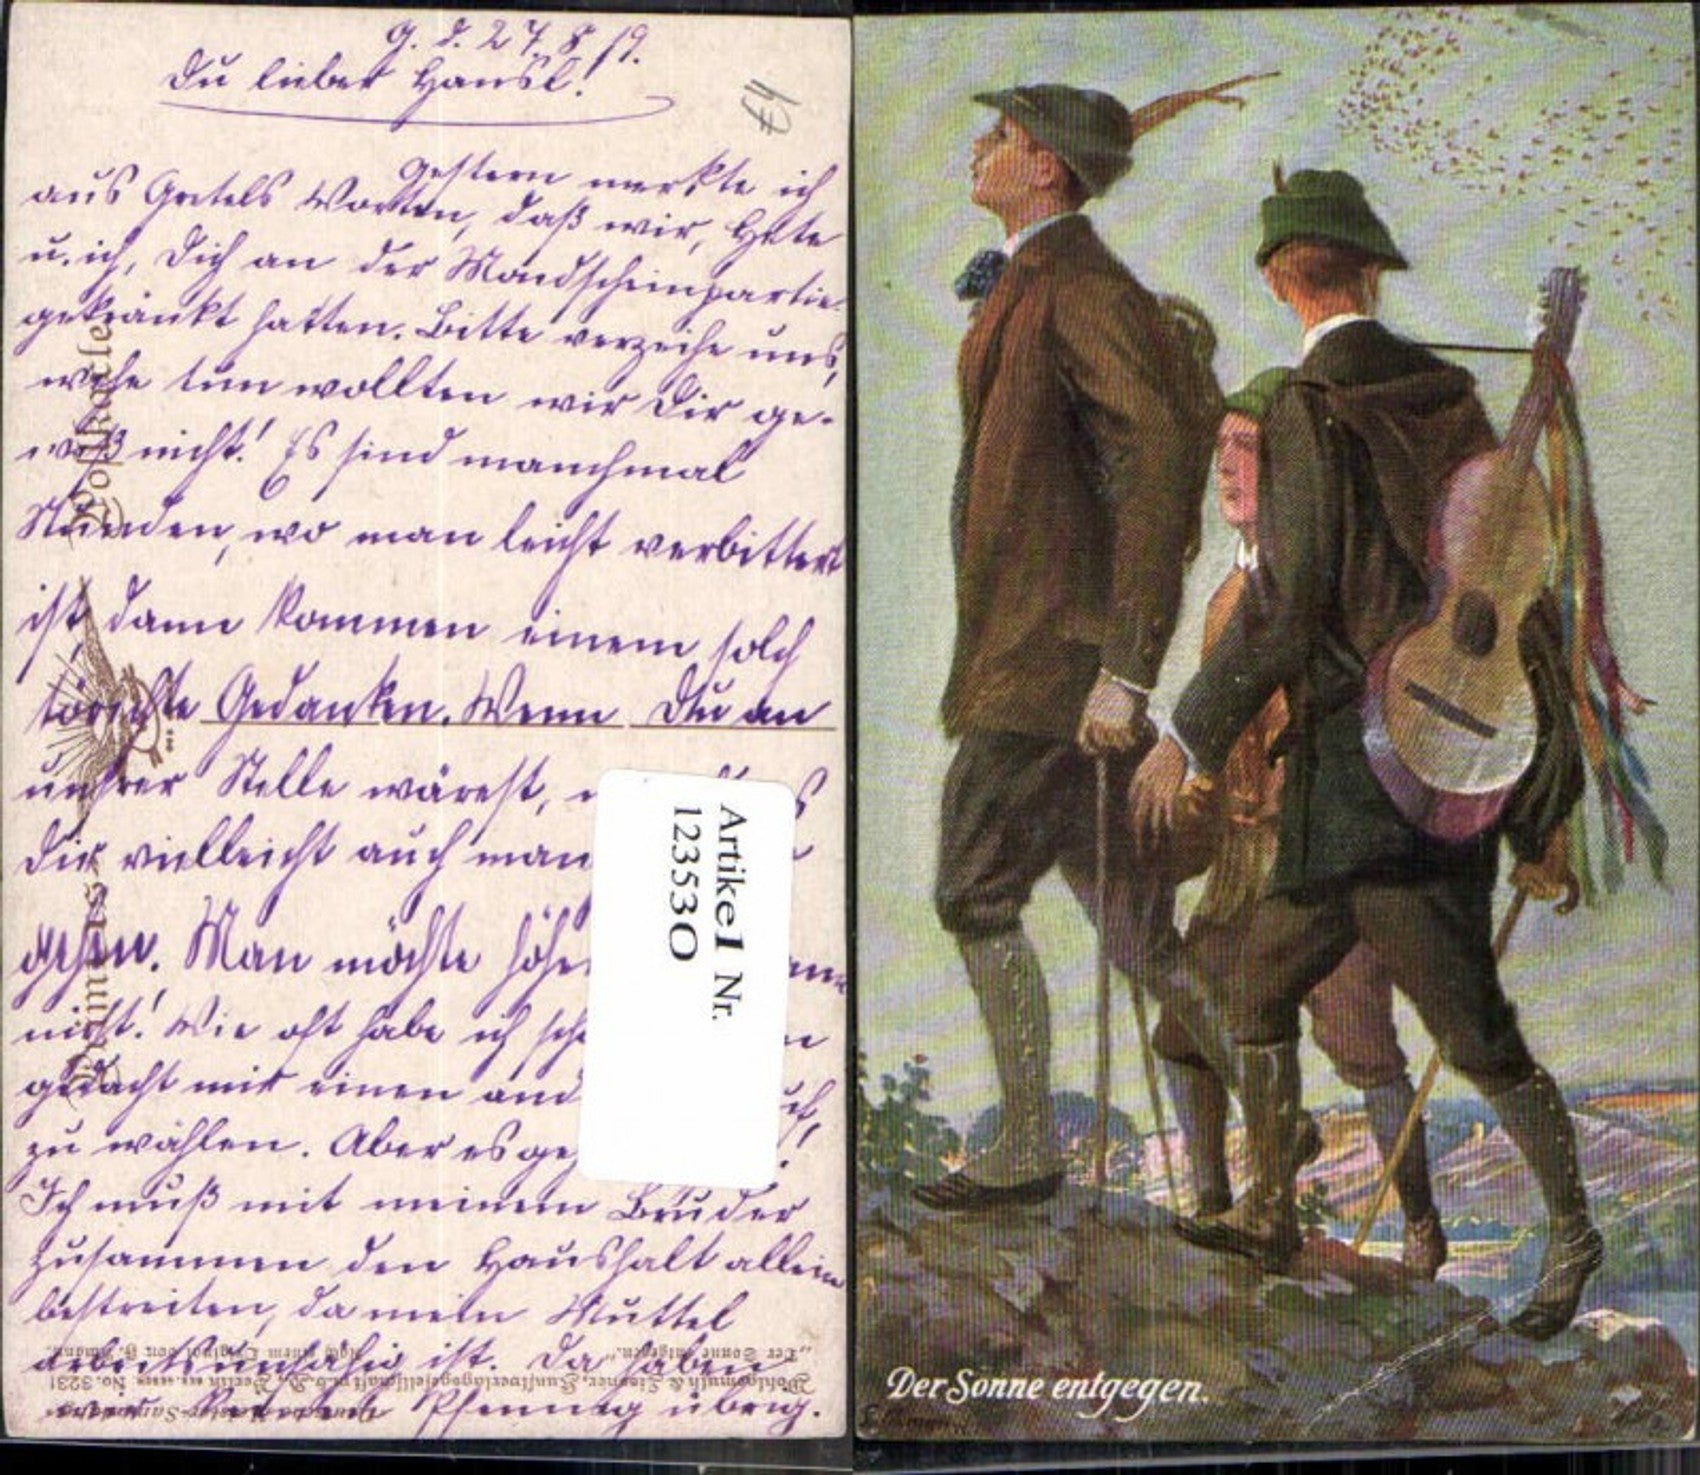 G. d. 27. 8. 19.
Du lieber Hansl!
€4
Gestern merkte ich
aus Gretels Worten, daß wir, Hete
u. ich, Dich an der Mondscheinpartie
gekränkt hatten. Bitte verzeihe uns,
wehe tun wollten wir Dir ge-
wiß nicht! Es sind manchmal
Stunden, wo man leicht verbittert
ist, dann kommen einem solch
törichte Gedanken. Wenn Du an
unsrer Stelle wärest, s
Dir vielleicht auch man
gehen. Man möchte
nicht! Wie oft habe ich
gedacht mir einen and
zu wählen. Aber es
Ich muß mit meinem Bruder
zusammen den Haushalt allein
bestreiten, da mein Muttel
arbeitsunfähig ist. Da haben
Pfennig übrig.
Postkarte
Artikel Nr.
123530
"Der Sonne entgegen."
Wohlgemuth & Lissner, Kunstverlagsgesellschaft m.b.H., Berlin No. 3231
Primus
Der Sonne entgegen.